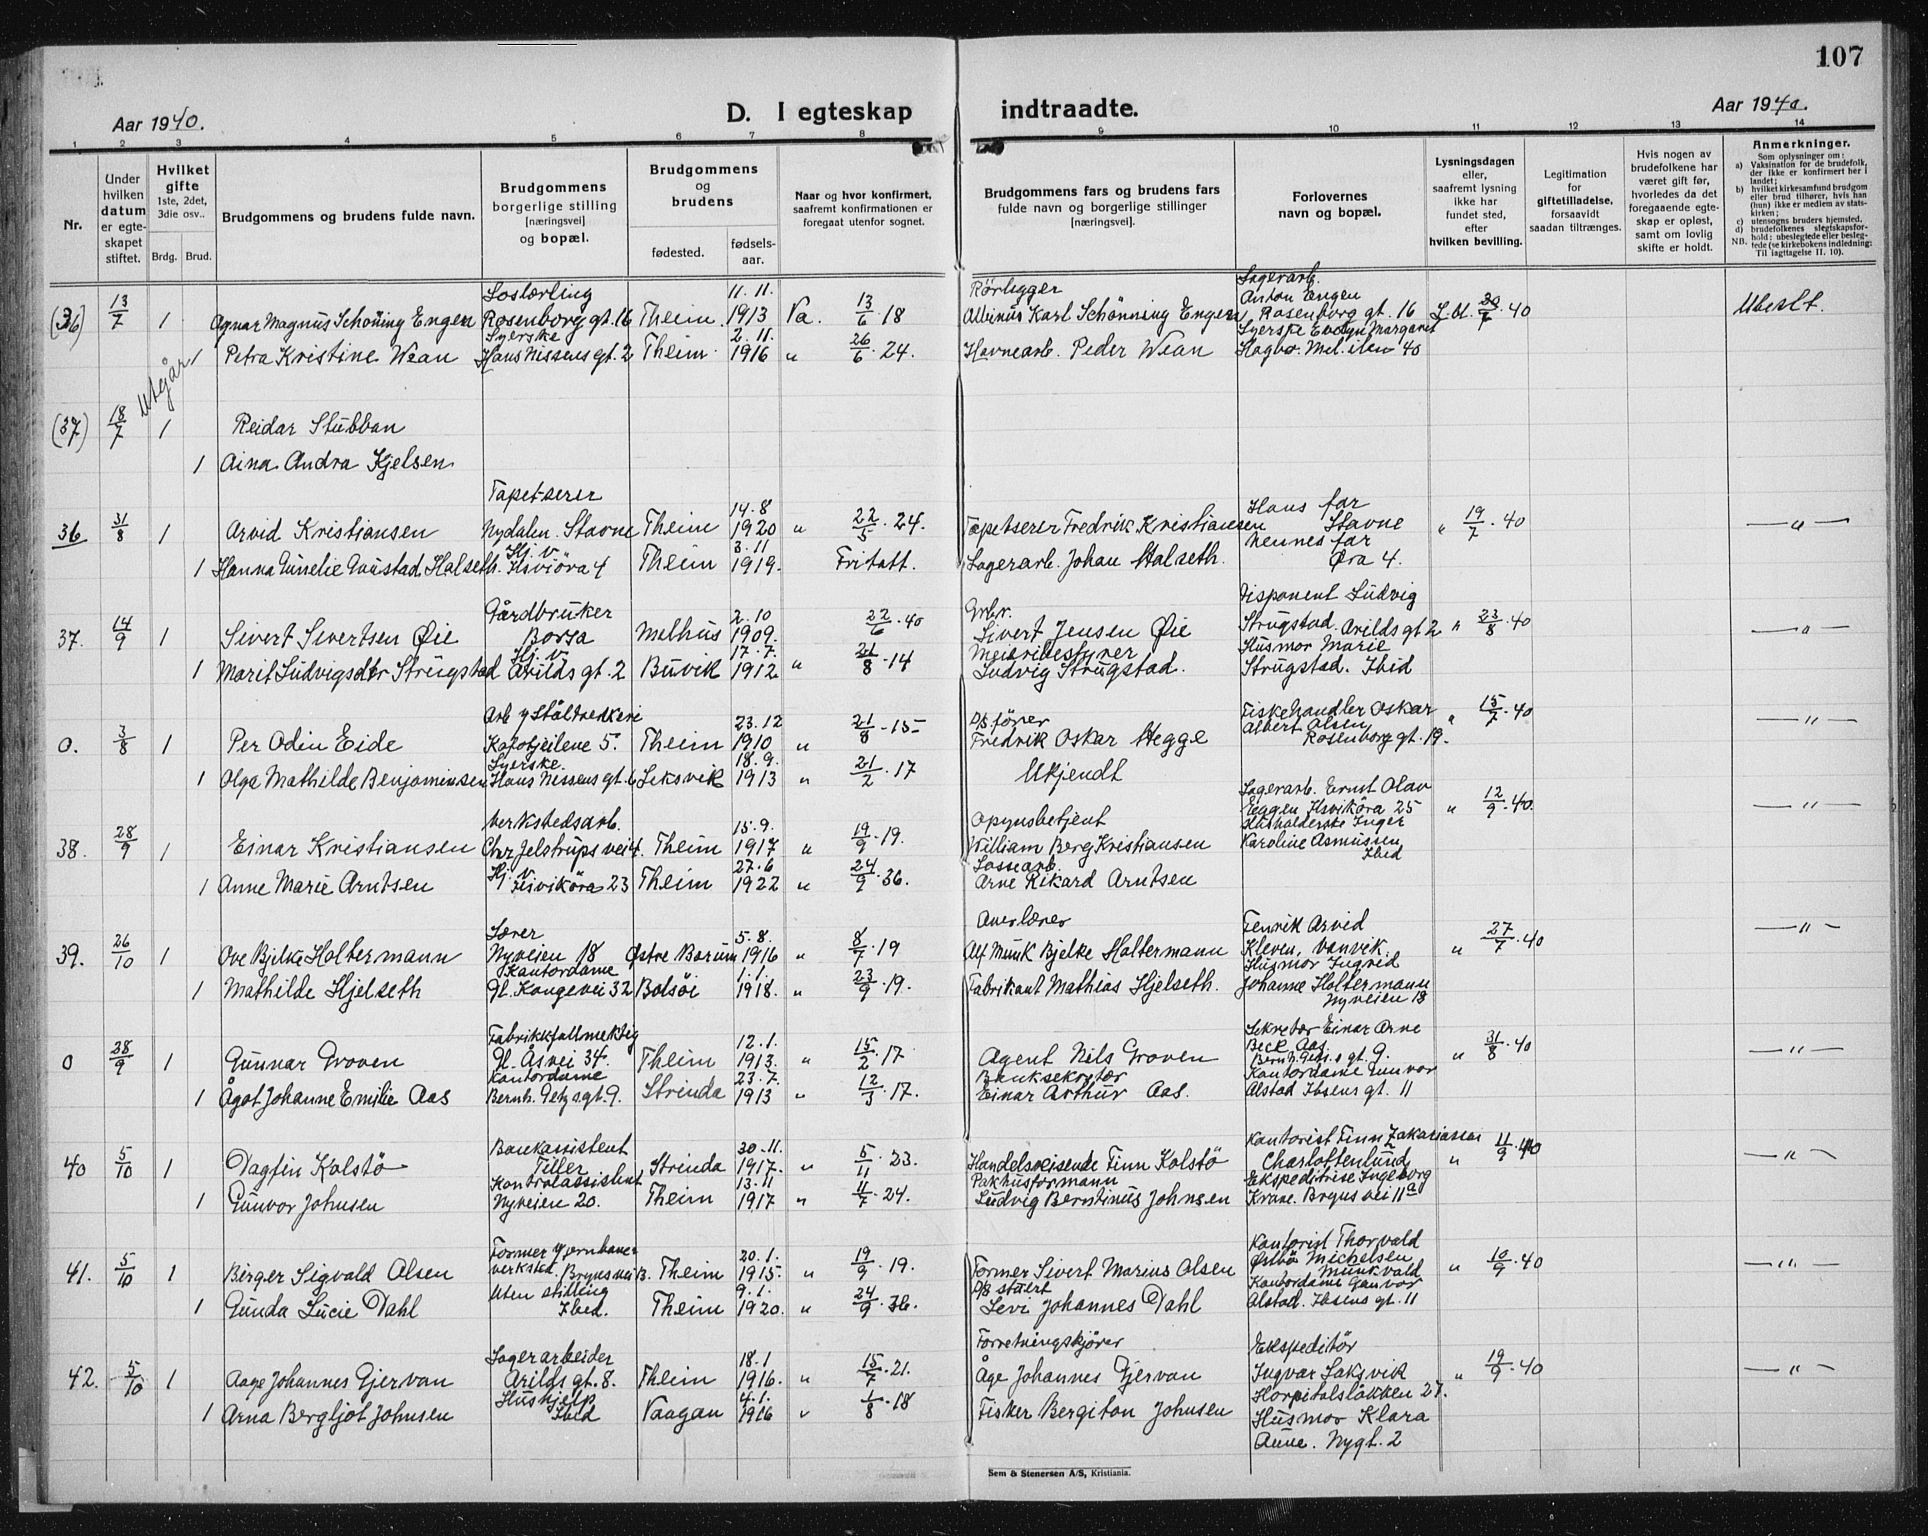 107
Aar 1940.
D. I egteskap indtraadte.
Aar 1940.
1 2 3 4 5 6 7 8 9 10 11 12 13 14
Nr.
Under hvilken datum er egteskapet stiftet.
Hvilket gifte 1ste, 2det, 3die osv..
Brdg. Brud.
Brudgommens og brudens fulde navn.
Brudgommens borgerlige stilling [næringsvei] og bopæl.
Brudgommens og brudens
fødested. fødselsaar.
Naar og hvor konfirmert, saafremt konfirmationen er foregaat utenfor sognet.
Brudgommens fars og brudens fars fulde navn og borgerlige stillinger [næringsvei].
Forlovernes navn og bopæl.
Lysningsdagen eller, saafremt lysning ikke har fundet sted, efter hvilken bevilling.
Legitimation for giftetilladelse, forsaavidt saadan tiltrænges.
Hvis nogen av brudefolkene har været gift før, hvorledes da det foregaaende egteskap er opløst, samt om lovlig skifte er holdt.
Anmerkninger.
Som oplysninger om:
a) Vaksination for de brudefolk, der ikke er konfirmert her i landet;
b) hvilket kirkesamfund brudgom eller brud tilhører, hvis han (hun) ikke er medlem av statskirken;
c) utensogns bruders hjemsted.
d) brudefolkenes slegtskapsforhold: ubeslegtede eller beslegtede (se kirkebokens indledning: Til iagttagelse II. 10).
NB.
(36) 13/7 1 Agnar Magnus Schöning Engen Rosenborg gt. 16 Theim 11.11. 1913 Va. 13/6 18 Rörlegger Albinus Karl Schönning Engen Lagerarb. Anton Engen Rosenborg gt. 16 40 Ubeslt.
1 Petra Kristine Wean Syerske Hans Nissens gt. 2 Theim 2.11. 1916 " 26/6 24. Havnearb. Peder Wean Syerske Evelyn Margaret
Utgår
(37) 18/7 1 Reidar Stubban
1 Aina Andra Kjelsen
36 31/8 1 Arvid Kristiansen Tapetserer Nydalen. Stavne Theim 14.8 1920 " 22/5 24. Tapetserer Fredrik Kristiansen Hans far Stavne " 19/7 40 — " —
1 Hanna Hj. v. Theim 3.11 1919. Fritatt. Lagerarb. Johan Halseth. Hennes far Øra 4.
37. 14/9 1 Sivert Sivertsen Øie Gårdbruker Borsa Melhus 2.10 1909. 22/6 40 Grbr. Sivert Jensen Øie Disponent Ludvig Strugstad. Arilds gt 2 " 23/8 40 — " —
1 Marit Ludvigsdtr Strugstad Hj. v. Arilds gt. 2 Buvik 17.7. 1912 " 21/8 14 Meieribestyrer Ludvig Strugstad. Husmor Marie Strugstad. Ibid
0. 3/8 1 Per Odin Eide Theim 23.12 1910 " 21/8 15 Fredrik Oskar Hegge Fiskehandler Oskar Albert Olsen Rosenborg gt. 19. " 15/7 40 — " —
1 Olga Mathilde Benjaminsen Syerske. Hans Nissens gt. 6 Leksvik 18.9. 1913 " 21/2 17 Ukjendt
38. 28/9 1 Einar Kristiansen Verkstedsarb. Chr. Jelstrups vei 4. Theim 15.9. 1917 " 19/9 19. Opsynsbetjent William Berg Kristiansen Lagerarb. Ernst Olav Eggen Ilsviköra 25 " 12/9 40 — " —
1 Anne Marie Arntsen Hj. v. Ilsviköra 23 Theim 27.6 1922 " 24/9 36. Lossearb. Arne Rikard Arntsen Husholderske Inger Karoline Asmussen Ibid
39. 26/10 1 Ove Bjelke Holtermann Lærer Nyveien 18 Østre Bærum 5.8. 1916 " 8/7 19 Overlærer Alf Munk Bjelke Holtermann Fenrik Arvid Kleven, Vanvik " 27/7 40 — " —
1 Mathilde Hjelseth Kontordame Gl. Kongevei 32 Bolsöi 1.1. 1918. " 23/9 19. Fabrikant Mathias Hjelseth. Husmor Ingrid Johanne Holtermann Nyveien 18
0 28/9 1 Gunnar Groven Fabrikkfullmektig Gl. Åsvei 34. Theim 12.1. 1913. " 15/2 17 Agent Nils Groven Sekretær Einar Arne Beck Aas. Bernh. Getz s gt. 9. " 31/8 40 — " —
1 Ågot Johanne Emilie Aas Kontordame Bernh. Getzs gt. 9. Strinda 23.7. 1913 " 12/3 17. Banksekretær Einar Arthur Aas. Kontordame Gunvor Alstad Ibsens gt. 11
40 5/10 1 Dagfin Kolstö Bankassistent Tiller Strinda 30.11. 1917. " 5/11 23. Handelsreisende Finn Kolstö Kontorist Finn Zakariassen Charlottenlund " 11/9 40 — " —
1 Gunvor Johnsen Kontorassistent Nyveien 20. Theim 13.11 1917 " 11/7 24. Pakhusformann Ludvig Berntinus Johnsen Ekspeditrise Ingeborg Krane. Brynsvei 11a
41. 5/10 1 Birger Sigvald Olsen Former Jernbaneverksted. Brynsvei B. Theim 20.1. 1915. " 19/9 19. Former Sivert Marius Olsen Kontorist Thorvald Østbö Michelsen Munkvold " 10/9 40 — " —
1 Gunda Lucie Dahl Uten stilling Ibid. Theim 9.1. 1920. " 24/9 36. Levi Johannes Dahl Kontordame Gunvor Alstad. Ibsens gt. 11
42. 5/10 1 Aage Johannes Gjervan Lagerarbeider Arilds gt. 8. Theim 18.1 1916. " 15/7 21. Forretningskjörer Åge Johannes Gjervan Ekspeditör Ingvar Saksvik Hospitalslökken 27. " 19/9 40 — " —
1 Arna Bergljot Johnsen Hushjelp Ibid Vaagan 4.1. 1916 " 1/8 18 Fisker Bergiton Johnsen Husmor Klara Aune. Nygt. 2
Sem & Stenersen A/S, Kristiania.